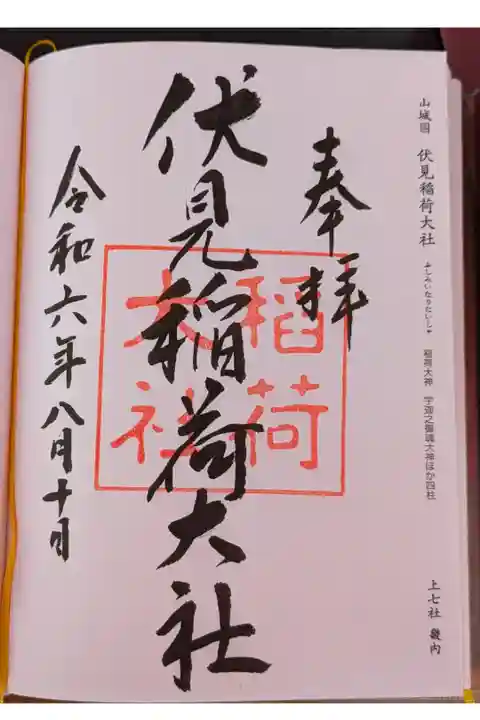 山城国 伏見稲荷大社 ふしみいなりたいしゃ 稲荷大神 宇迦之御魂大神ほか四柱 上七社 畿内
奉拝
伏見稲荷大社
稲荷
大社
令和六年八月十日